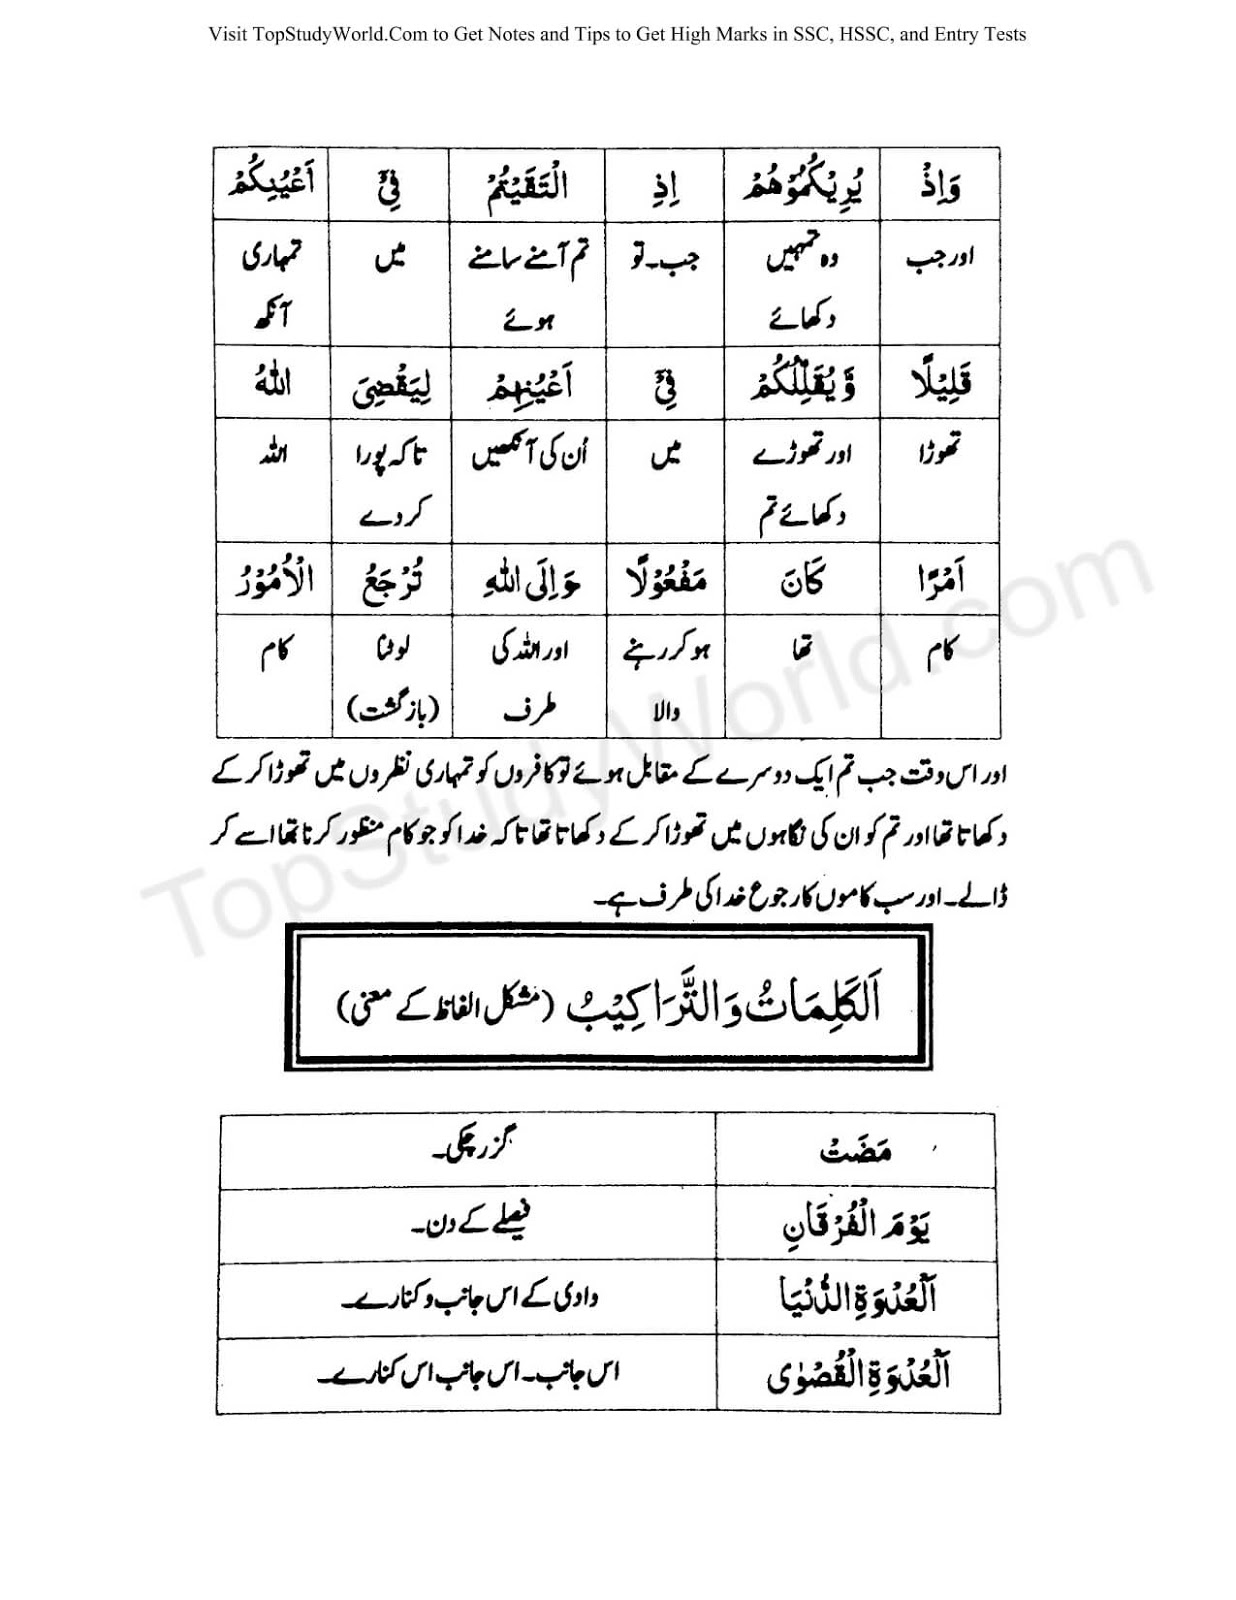 Visit TopStudyWorld.Com to Get Notes and Tips to Get High Marks in SSC, HSSC, and Entry Tests
وَاِذْ يُرِيْكُمُوْهُمْ اِذِ الْتَقَيْتُمْ فِىْٓ اَعْيُنِكُمْ
اور جب وہ تمہیں جب۔تو تم آمنے سامنے میں تمہاری
دکھائے ہوئے آنکھ
قَلِيْلًا وَّيُقَلِّلُكُمْ فِىْٓ اَعْيُنِهِمْ لِيَقْضِىَ اللّٰهُ
تھوڑا اور تھوڑے میں اُن کی آنکھیں تاکہ پورا اللہ
دکھائے تم کردے
اَمْرًا كَانَ مَفْعُوْلًا وَاِلَى اللّٰهِ تُرْجَعُ الْاُمُوْرُ
کام تھا ہوکر رہنے اور اللہ کی لوٹنا کام
والا طرف (بازگشت)
اور اس وقت جب تم ایک دوسرے کے مقابل ہوئے تو کافروں کو تمہاری نظروں میں تھوڑا کر کے
دکھاتا تھا اور تم کو ان کی نگاہوں میں تھوڑا کر کے دکھاتا تھا تاکہ خدا کو جو کام منظور کرنا تھا اسے کر
ڈالے۔ اور سب کاموں کا رجوع خدا کی طرف ہے۔
اَلْكَلِمَاتُ وَالتَّرَاكِيْبُ (مشکل الفاظ کے معنی)
مَضَتْ گزر چکی۔
يَوْمَ الْفُرْقَانِ فیصلے کے دن۔
اَلْعُدْوَةِ الدُّنْيَا وادی کے اس جانب و کنارے۔
اَلْعُدْوَةِ الْقُصْوٰى اس جانب۔ اس جانب اس کنارے۔
TopStudyWorld.com